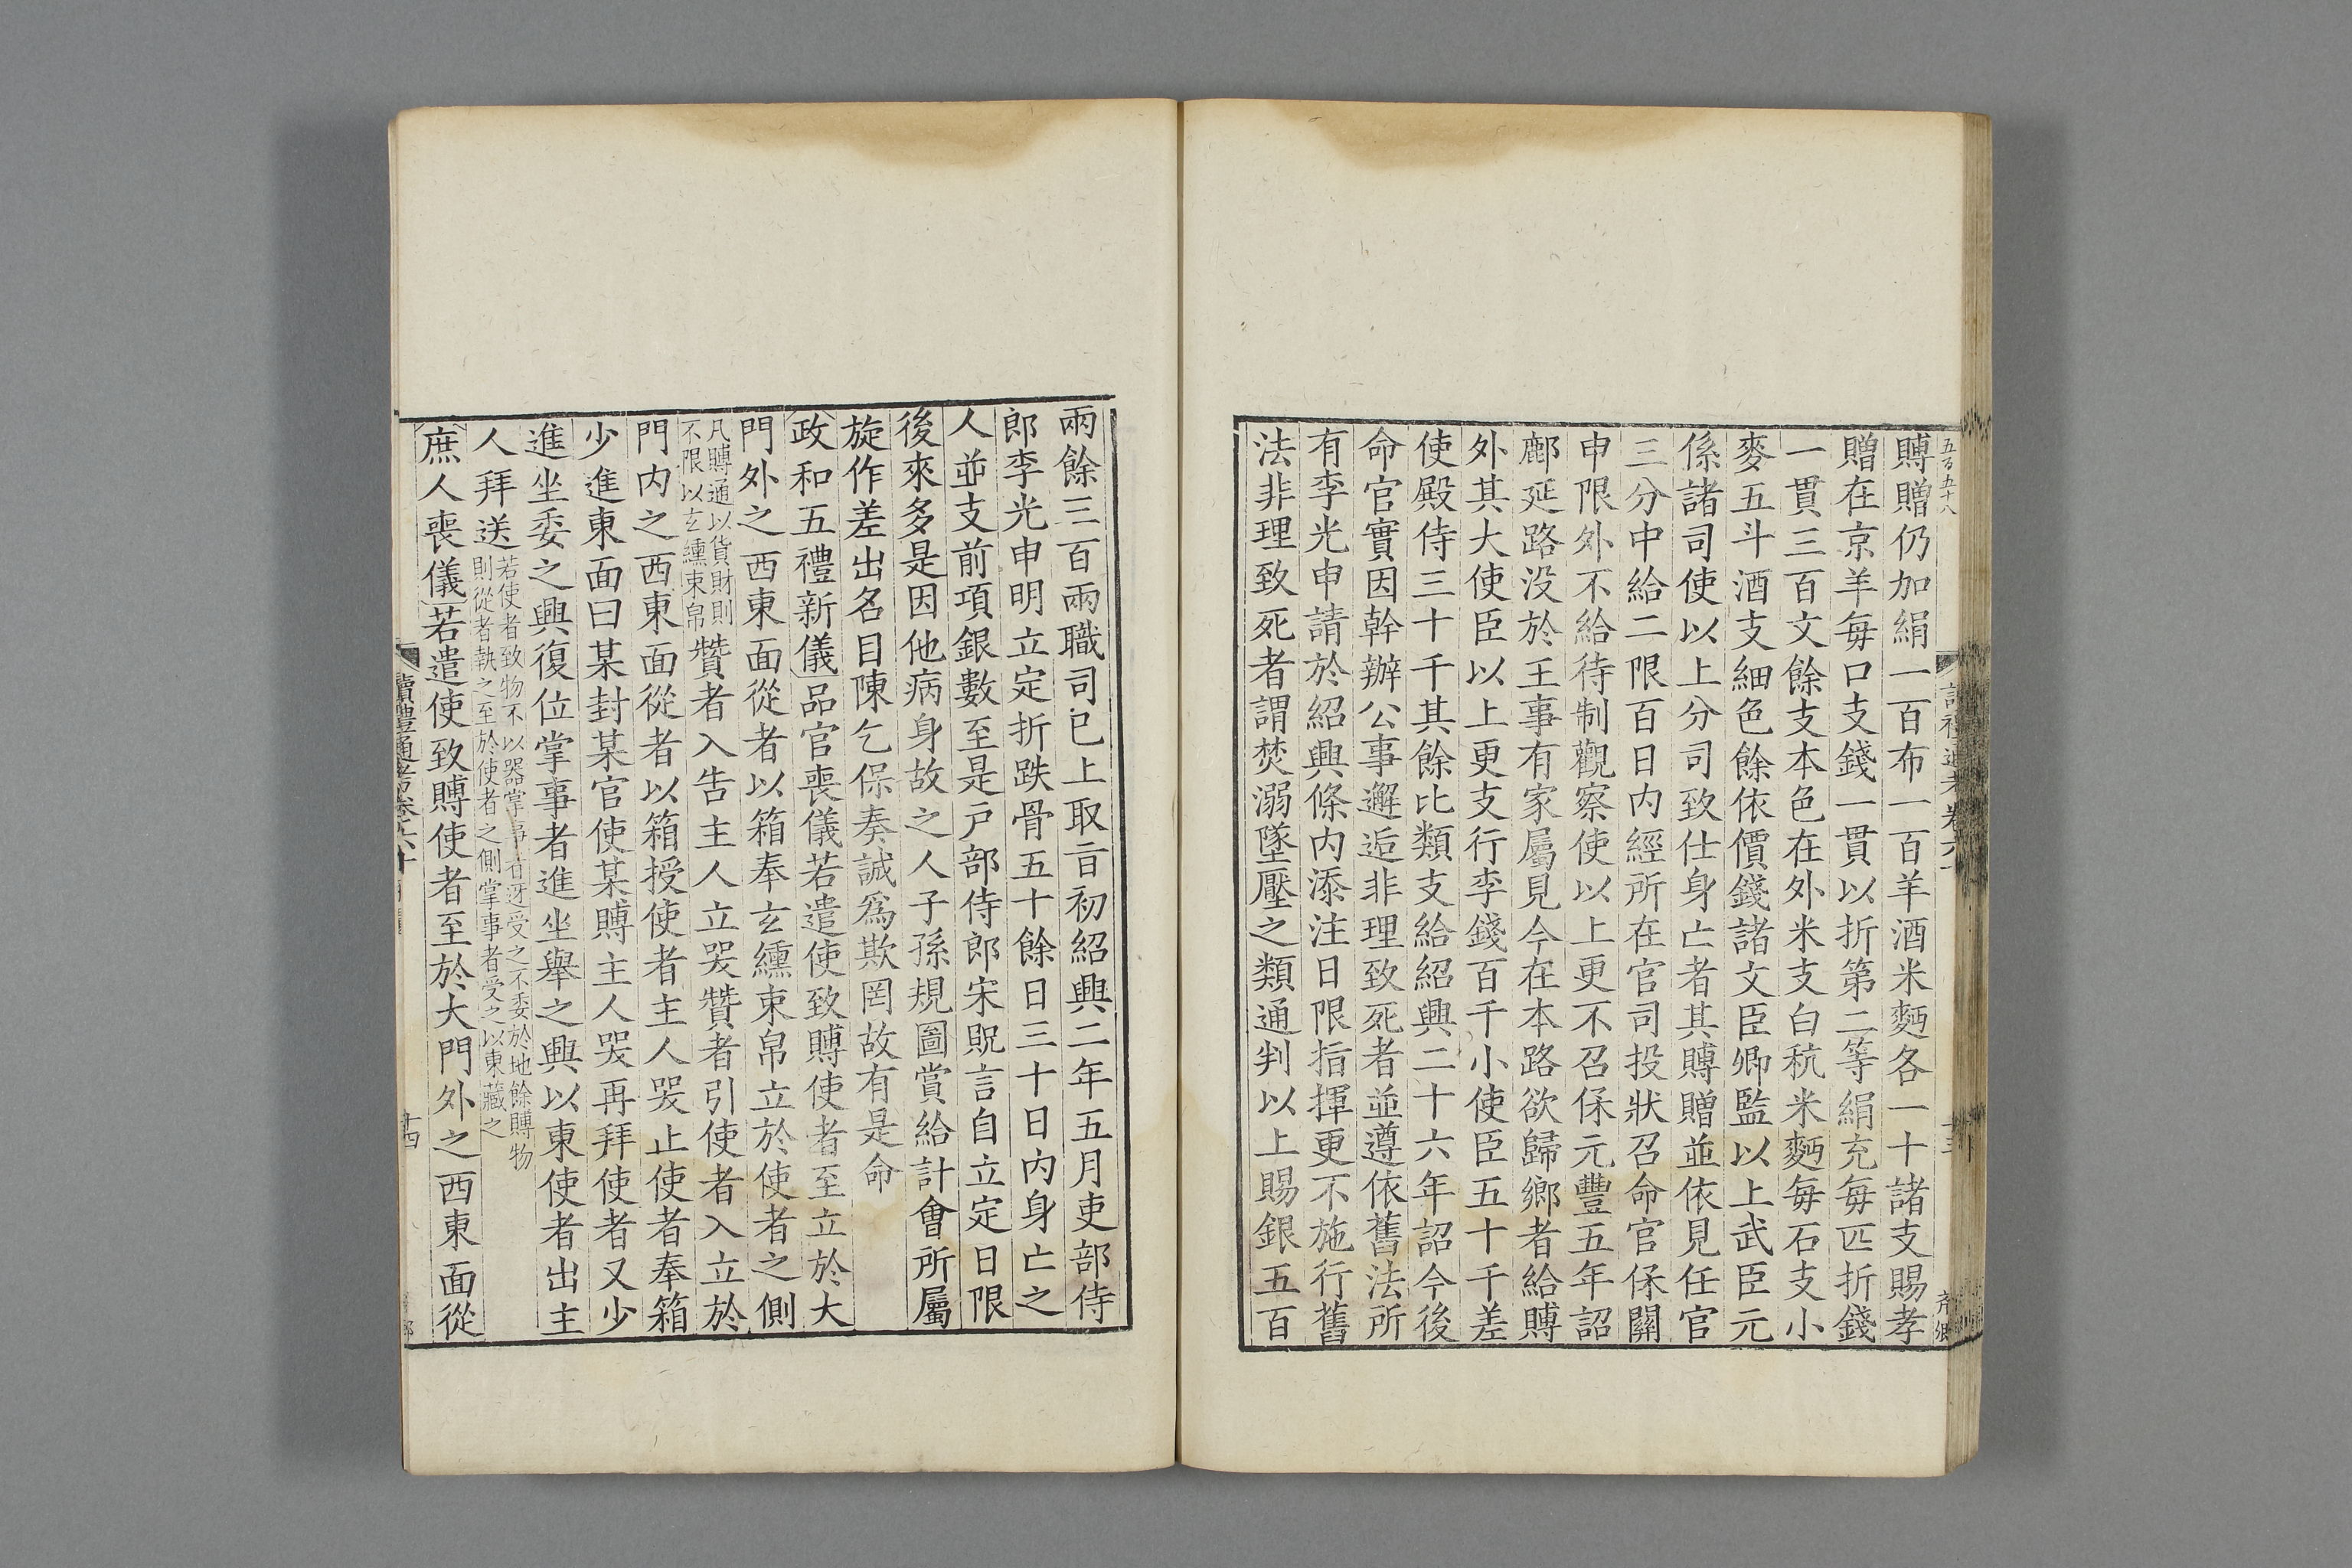 五百五十八
賻贈仍加絹一百布一百羊酒米麪各一十諸支賜孝
贈在京羊每口支錢一貫以折第二等絹充每匹折錢
一貫三百文餘支本色在外米支白秔米麪每石支小
麥五斗酒支細色餘依價錢諸文臣卿監以上武臣元
係諸司使以上分司致仕身亡者其賻贈並依見任官
三分中給二限百日內經所在官司投狀召命官保關
申限外不給待制觀察使以上更不召保元豐五年詔
鄜延路沒於王事有家屬見今在本路欲歸鄉者給賻
外其大使臣以上更支行李錢百千小使臣五十千差
使殿侍三十千其餘比類支給紹興二十六年詔今後
命官實因幹辦公事邂逅非理致死者並遵依舊法所
有李光申請於紹興條內添注日限指揮更不施行舊
法非理致死者謂焚溺墜壓之類通判以上賜銀五百
兩餘三百兩職司已上取旨初紹興二年五月吏部侍
郎李光申明立定折跌骨五十餘日三十日內身亡之
人並支前項銀數至是戶部侍郎宋貺言自立定日限
後來多是因他病身故之人子孫規圖賞給計會所屬
旋作差出名目陳乞保奏誠爲欺罔故有是命
政和五禮新儀品官喪儀若遣使致賻使者至立於大
門外之西東面從者以箱奉玄纁束帛立於使者之側
凡賻通以貨財則
不限以玄纁束帛
贊者入告主人立哭贊者引使者入立於
門內之西東面從者以箱授使者主人哭止使者奉箱
少進東面曰某封某官使某賻主人哭再拜使者又少
進坐委之興復位掌事者進坐舉之興以東使者出主
人拜送
若使者致物不以器掌事者迓受之不委於地餘賻物
則從者執之至於使者之側掌事者受之以東藏之
庶人喪儀若遣使致賻使者至於大門外之西東面從
讀禮通考卷六十
十四